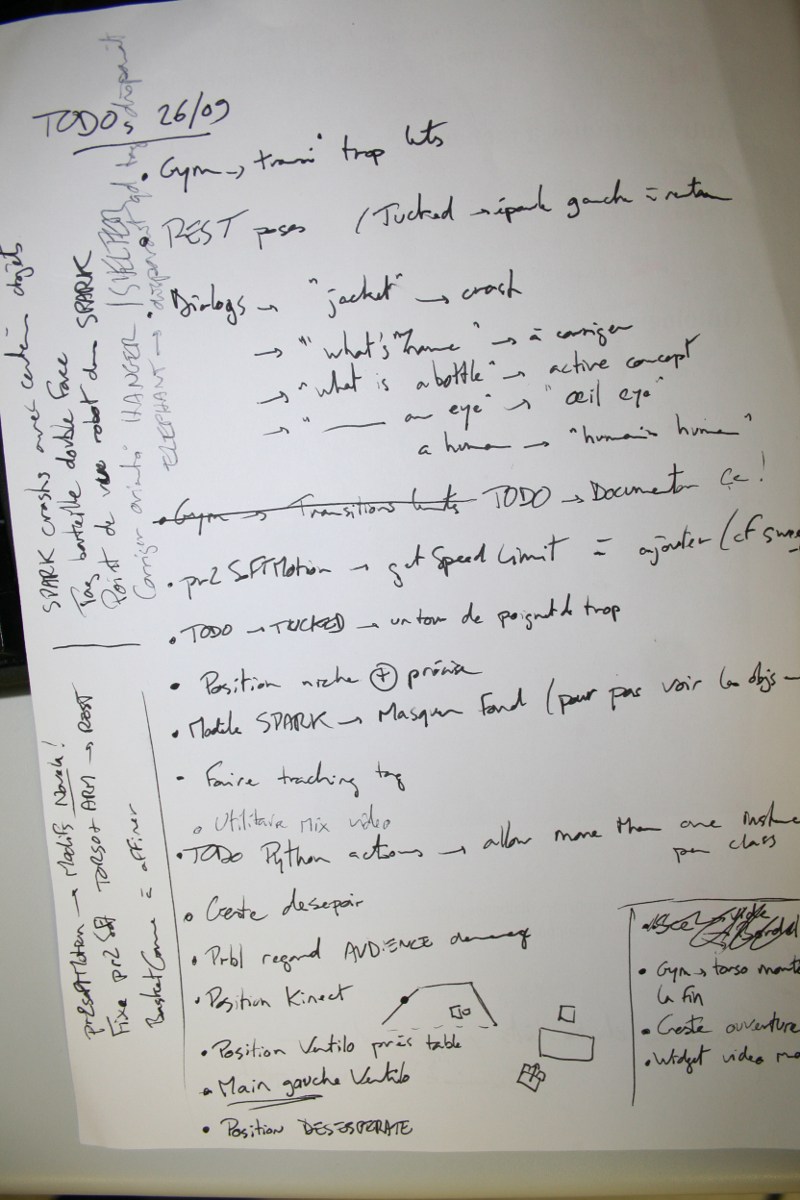 TODOs 26/09
• Gym → transi° trop lentes
• REST poses (Tucked → épaule gauche = retourn
• Dialogs → "jacket" → crash
→ "what's name" → à corriger
→ "what is a bottle" → active concept
→ "—— an eye" → "œil eye"
a human → "humain human"
• Gym → Transitions lentes TODO → Documenter ça!
• pr2 SOFTMotion → get Speed Limit = ajouter (cf
• TODO → TUCKED → un tour de poignet de trop
• Position niche ⊕ précise
• Modèle SPARK → Masquer Fond (pour pas voir les objs
- Faire tracking tag
o Utilitaire Mix video
• TODO Python actions → allow more than one instance
per class
o Geste desespoir
• Prbl regard AUDIENCE
• Position Kinect
• Position Ventilo près table
• Main gauche Ventilo
• Position DESESPERATE
• Gym → torso
la fin
• Geste ouverture
• Widget video
SPARK crashs avec certains objets
Tag bouteille double face
Point de vue robot dans SPARK
Corriger orienta° HANGER / SHELTER
ELEPHANT → disparait qd tag disparait
pr2SoftMotion → Modifs Novela!
Fixe pr2 Soft TORSO + ARM → REST
Basket Come = affiner